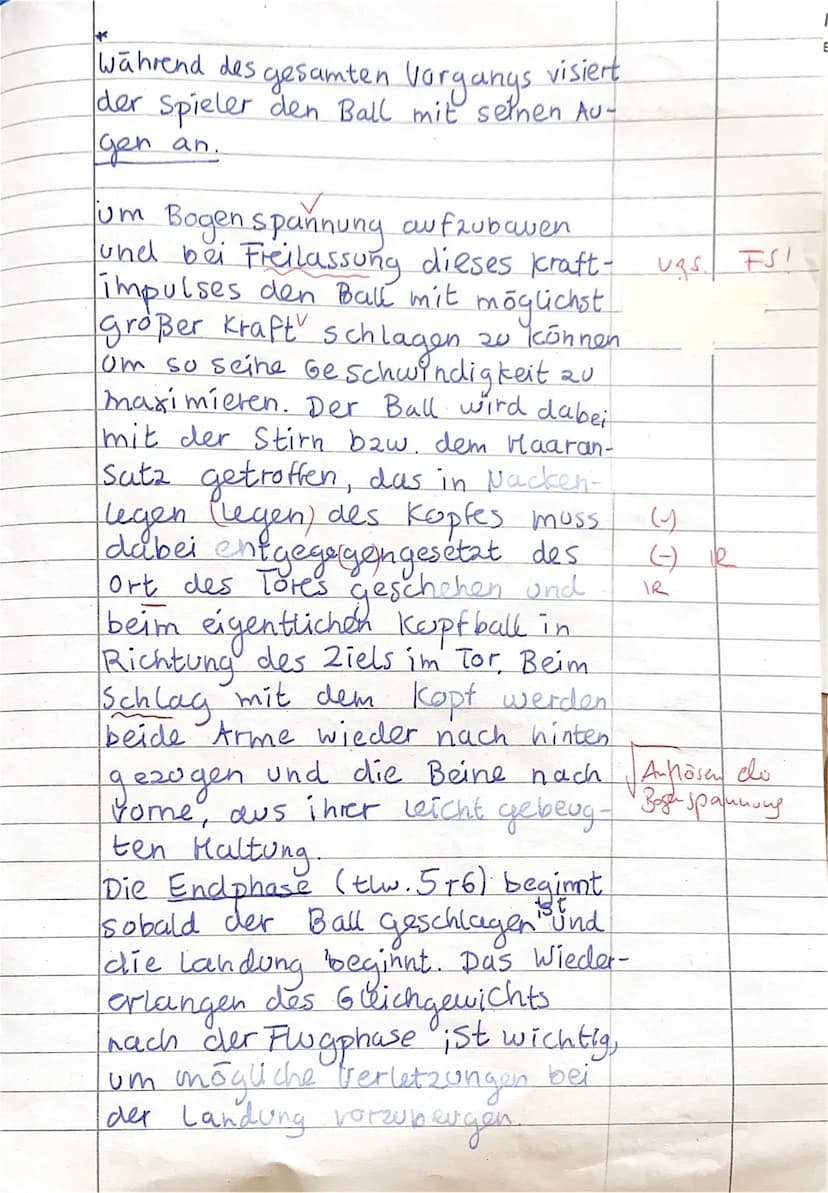 *
Während des gesamten Vorgangs visiert
der Spieler den Ball mit seinen Au-
gen an.
um Bogenspannung aufzubauen
und bei Freilassung dieses Kraft- ugs. FS!
impulses den Ball mit möglichst
großer Kraft schlagen zu können
um so seine Geschwindigkeit zu
maximieren. Der Ball wird dabei
mit der Stirn bzw. dem Haaran-
satz getroffen, das in Nacken-
legen (legen) des Kopfes muss (-)
dabei entgege(gen)gesetzt des (-) R
Ort des Tores geschehen und R
beim eigentlichen Kopfball in
Richtung des Ziels im Tor. Beim
Schlag mit dem Kopf werden
beide Arme wieder nach hinten
gezogen und die Beine nach Auflösen der
vorne, aus ihrer leicht gebeug- Bogenspannung
ten Haltung.
Die Endphase (tlw. 5+6) beginnt
sobald der Ball geschlagen ist und
die Landung beginnt. Das Wieder-
erlangen des Gleichgewichts
nach der Flugphase ist wichtig,
um mögliche Verletzungen bei
der Landung vorzubeugen.